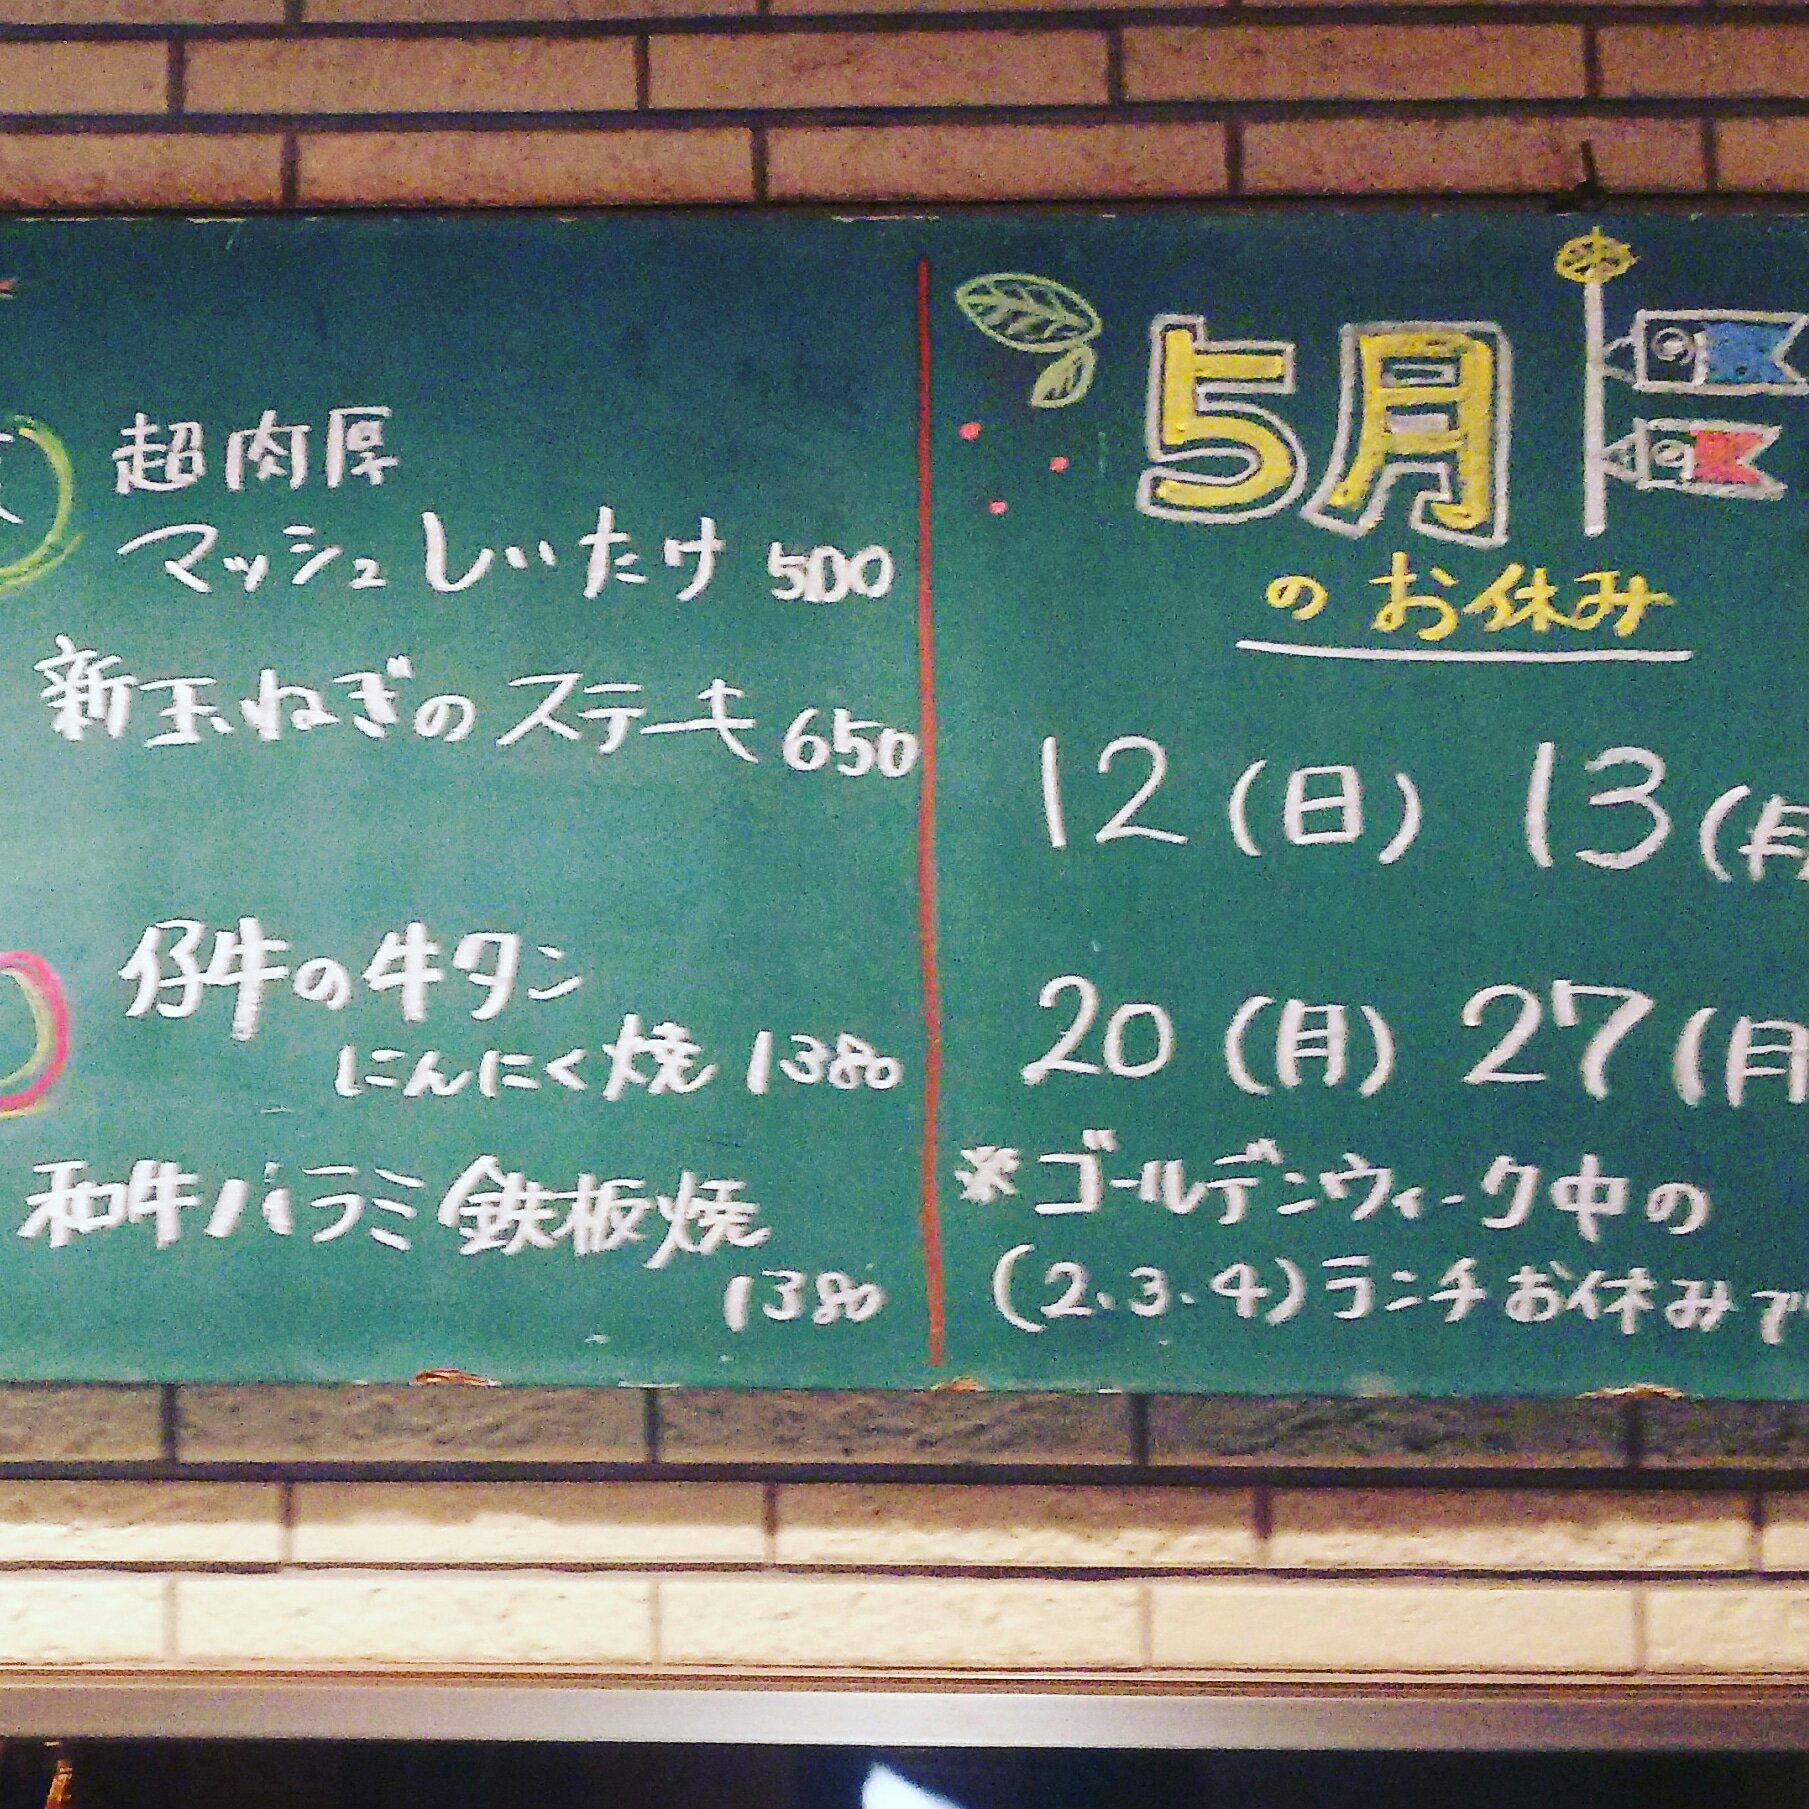 超肉厚
マッシュしいたけ 500
新玉ねぎのステーキ 650
仔牛の牛タン
にんにく焼 1380
和牛ハラミ鉄板焼
1380
5月
のお休み
12(日) 13(月
20(月) 27(月
※ゴールデンウィーク中の
(2.3.4)ランチお休みで